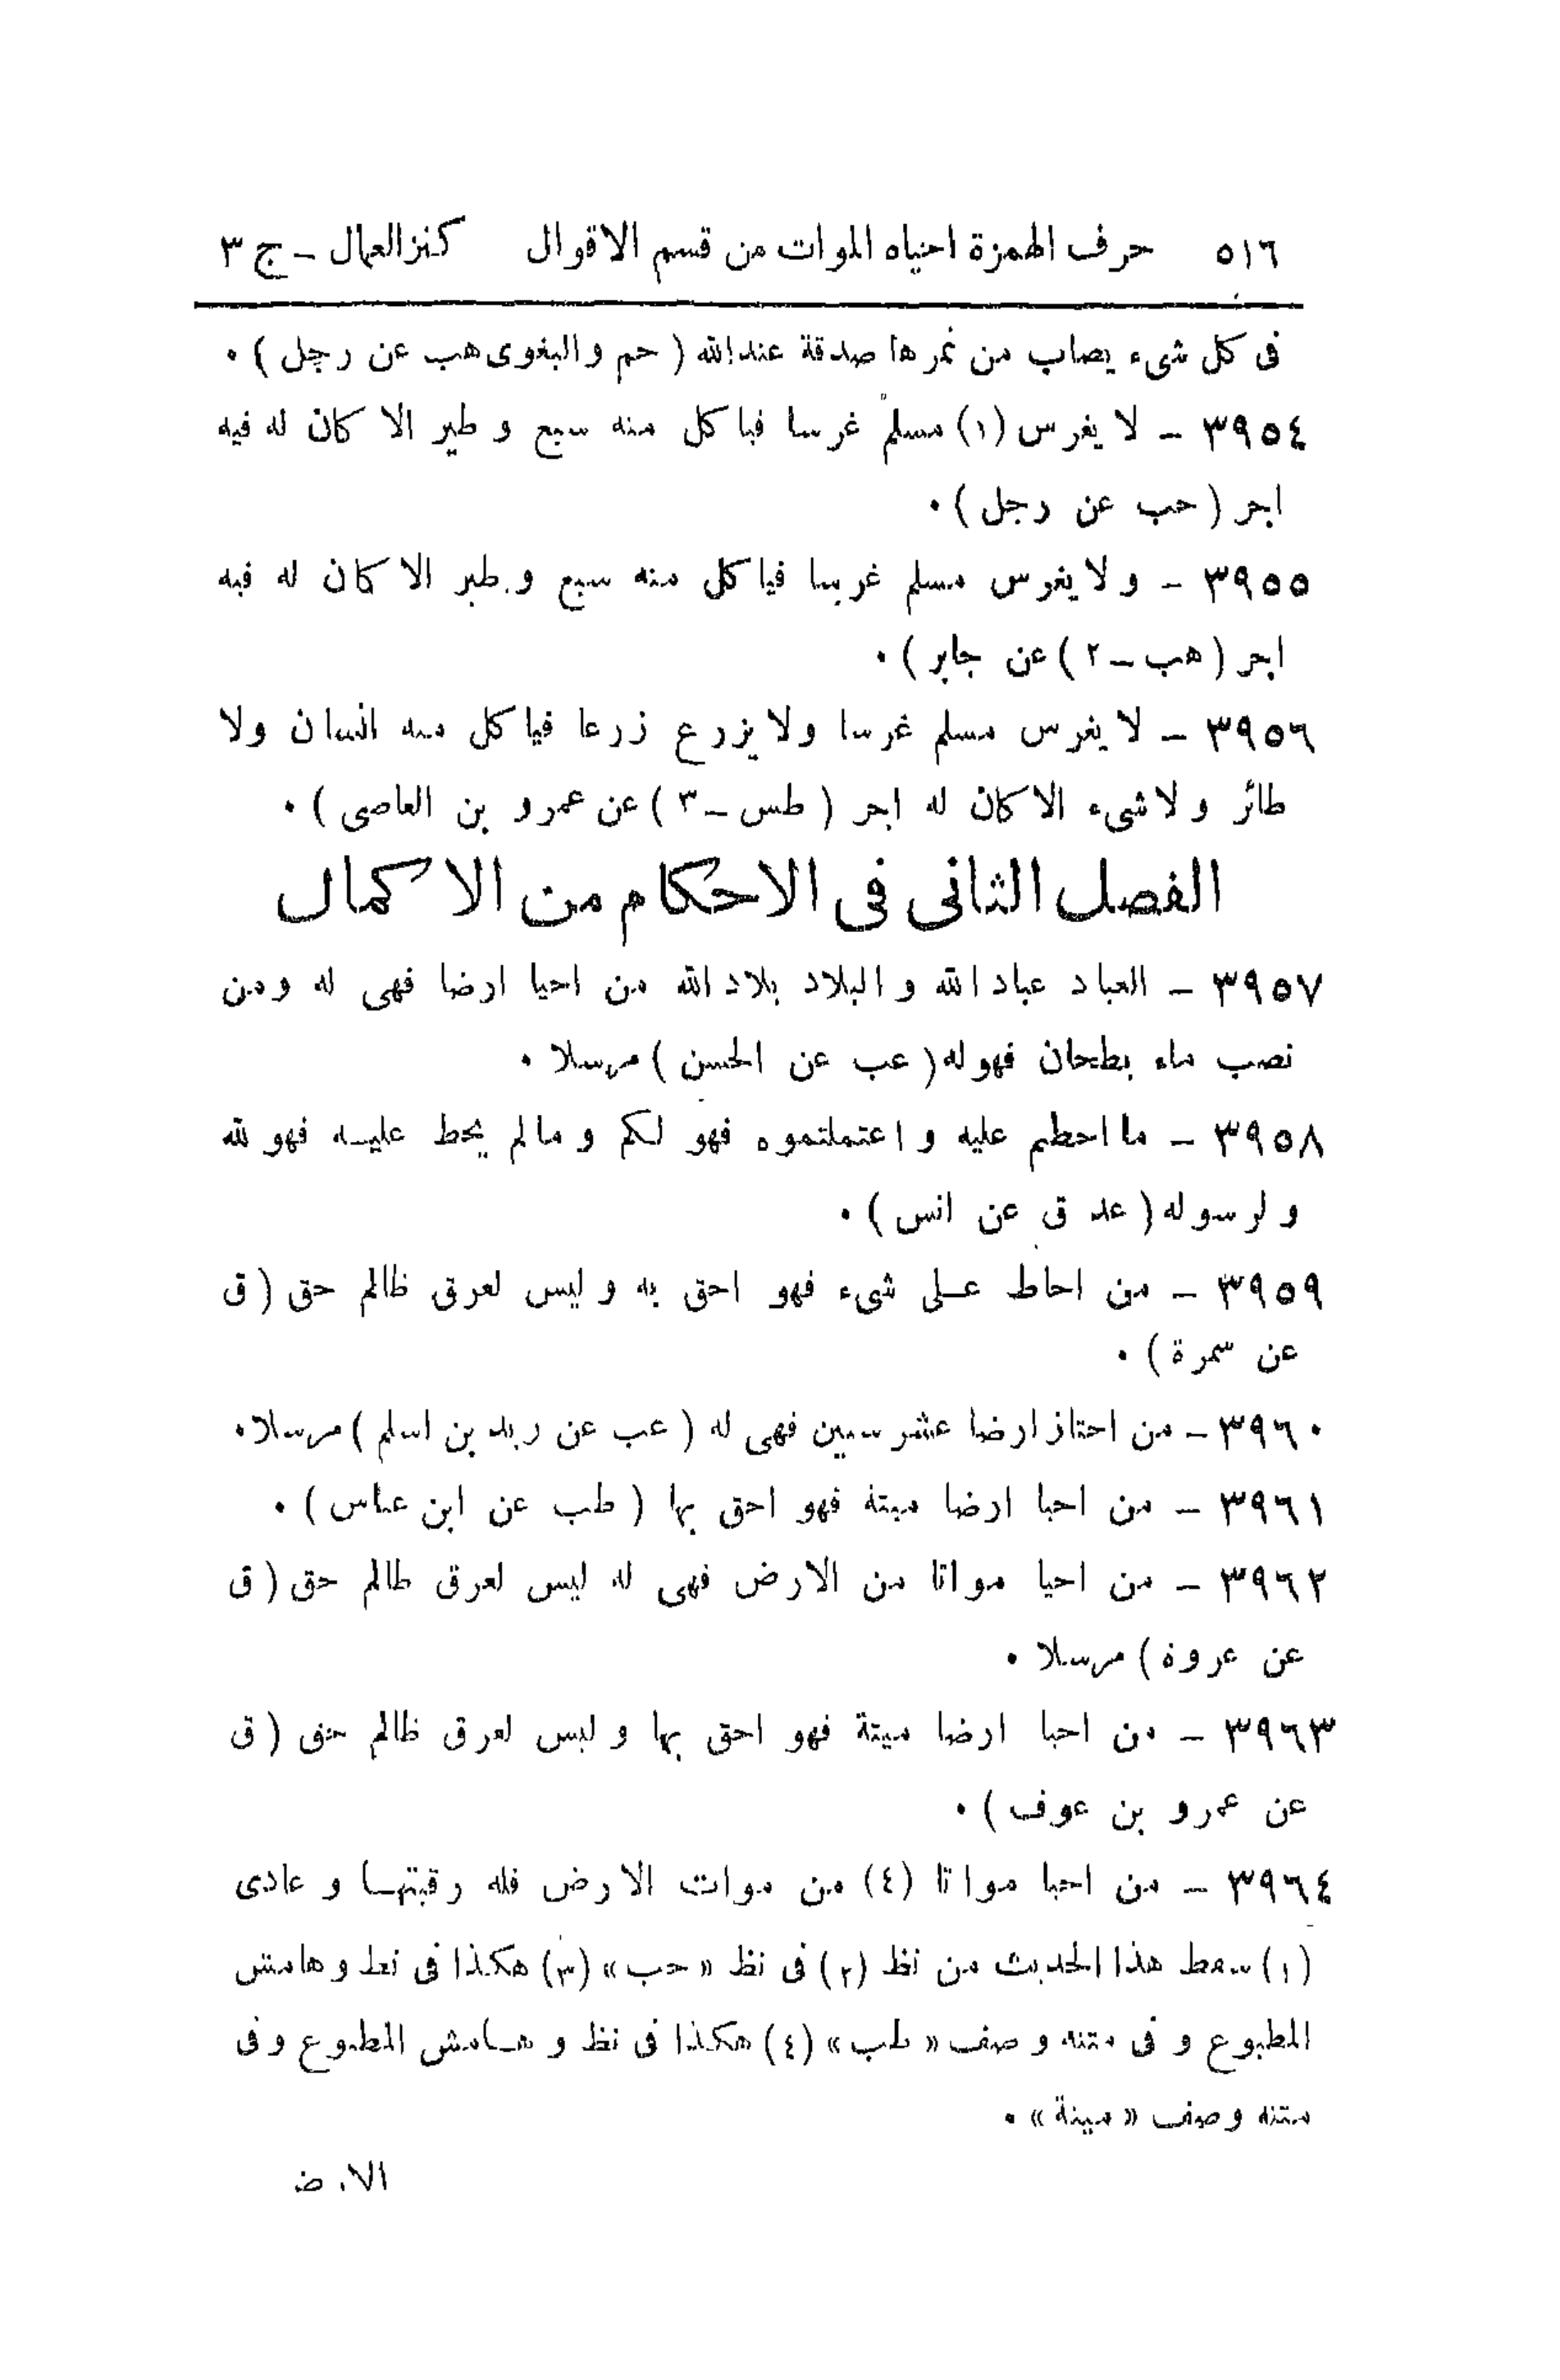 ٥١٦ حرف الهمزة احياه الموات من قسم الاقوال كنزالعمال - ج ٣
فى كل شىء يصاب من ثمرها صدقة عندالله ( حم والبغوى هب عن رجل ) ٠
٣٩٥٤ - لا يغرس (١) مسلم غرسا فياكل منه سبع و طير الا كان له فيه
اجر ( حب عن رجل ) ٠
٣٩٥٥ - ولا يغرس مسلم غرسا فياكل منه سبع و طير الا كان له فيه
اجر ( هب - ٢ ) عن جابر ) ٠
٣٩٥٦ - لا يغرس مسلم غرسا ولا يزرع زرعا فياكل منه انسان ولا
طائر ولا شىء الا كان له اجر ( طس - ٣ ) عن عمرو بن العاصى ) ٠
الفصل الثانى فى الاحكام من الاكمال
٣٩٥٧ - العباد عباد الله و البلاد بلاد الله من احيا ارضا فهى له ومن
نصب ماء بطحان فهو له ( عب عن الحسن ) مرسلا ٠
٣٩٥٨ - ما احطتم عليه و اعتملتموه فهو لكم و مالم يحط عليه فهو لله
و لرسوله ( عد ق عن انس ) ٠
٣٩٥٩ - من احاط على شىء فهو احق به و ليس لعرق ظالم حق ( ق
عن سمرة ) ٠
٣٩٦٠ - من احتاز ارضا عشر سنين فهى له ( عب عن زيد بن اسلم ) مرسلا ٠
٣٩٦١ - من احيا ارضا ميتة فهو احق بها ( طب عن ابن عباس ) ٠
٣٩٦٢ - من احيا مواتا من الارض فهى له ليس لعرق ظالم حق ( ق
عن عروة ) مرسلا ٠
٣٩٦٣ - من احيا ارضا ميتة فهو احق بها و ليس لعرق ظالم حق ( ق
عن عمرو بن عوف ) ٠
٣٩٦٤ - من احيا مواتا (٤) من موات الارض فله رقبتها و عادى
(١) سقط هذا الحديث من نظ (٢) فى نظ « حب » (٣) هكذا فى نظ و هامش
المطبوع و فى متنه و صف « طب » (٤) هكذا فى نظ و هامش المطبوع و فى
متنه وصف « ميتة » ٠
الارض